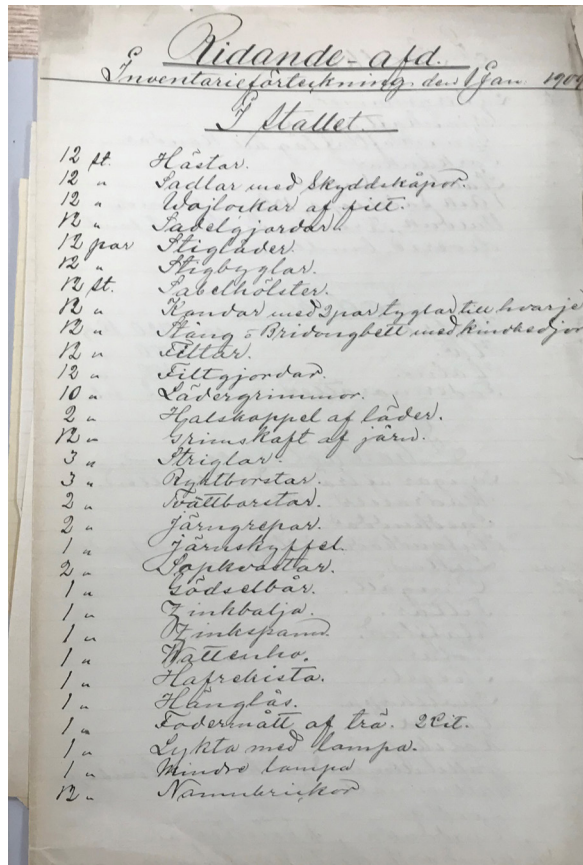 Ridande-afd.
Inventarieförteckning den 1 Jan. 1909
I stallet.
12 st. Hästar.
12 " Sadlar med Skyddskåpor.
12 " Wojlockar af filt.
12 " Sadelgjordar.
12 par Stigläder.
12 " Stigbyglar.
12 st. Sabelhölster.
12 " Kandar med 2 par tyglar till hvarje
12 " Stång o Bridongbett med kindkedjor
12 " Filtar.
12 " Filtgjordar.
10 " Lädergrimmor.
2 " Halskoppel af läder.
12 " Grimskaft af järn.
3 " Striglar.
3 " Ryktborstar.
2 " Tvättborstar.
2 " Järngrepar.
1 " Järnskyffel.
2 " Sopkvastar.
1 " Gödselbår.
1 " Zinkbalja.
1 " Zinkspann.
1 " Wattenho.
1 " Hafrekista.
1 " Hänglås.
1 " Fodermått af trä. 2 Lit.
1 " Lykta med lampa.
1 " Mindre lampa
12 " Namnbrickor